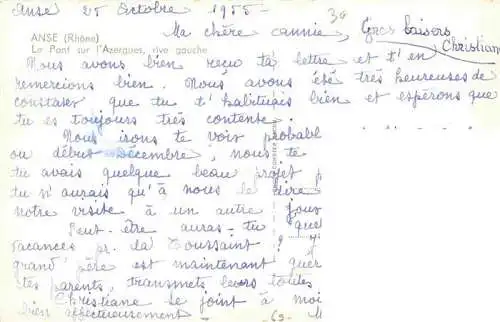 Anse 25 Octobre 1955 -
30
ANSE (Rhône)
Le Pont sur l'Azergues, rive gauche
Ma chère cannie,
Gros baisers
Christian
Nous avons bien reçu ta lettre et t'en
remercions bien. Nous avons été très heureuses de
constater que tu t'habituais bien et espérons que
tu es toujours très contente.
Nous irons te voir probabl
ou début Décembre, nous te
tu avais quelque beau projet p
tu n'aurais qu'à nous le dire
notre visite à un autre jour
Peut-être auras-tu que
vacances pr. la Toussaint ?
grand' père est maintenant guer
tes parents, transmets leurs toutes
Christiane se joint à moi
bien affectueusement
- 69 - M